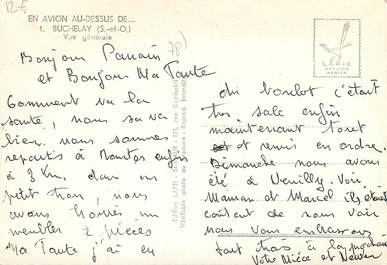 EN AVION AU-DESSUS DE...
1. BUCHELAY (S.-et-O.)
Vue générale
78)
Bonjour Parrain
et Bonjour Ma Tante
Comment va la
sante, nous sa va
bien. nous sommes
reparti à Mantes enfin
à 3 Km. dans un
petit trou, nous
avons trouvés un
meublés 2 pièces
Ma Tante j'ai eu
LAPIE
SERVICE
AERIEN
du boulot c'était
tres sale enfin
maintenant tout
est remis en ordre.
Dimanche nous avons
été à Neuilly. Voir
Maman et Marcel ils étaient
content de nous voir
nous vous embrassons
tout
Votre Nièce et Neveu